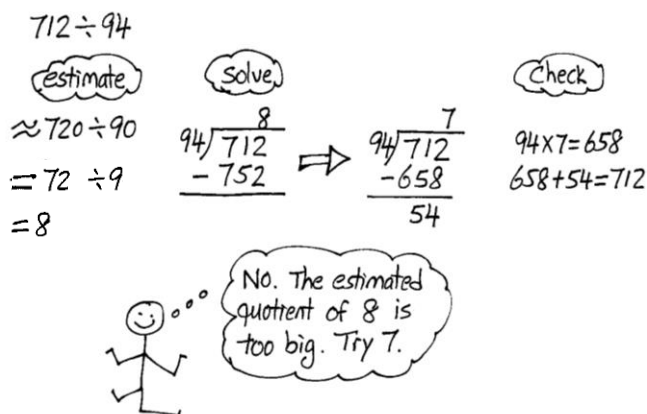 712÷94
estimate
≈720÷90
=72 ÷9
=8
Solve
8
94)712
-752
⇒
7
94)712
-658
54
Check
94×7=658
658+54=712
No. The estimated
quotient of 8 is
too big. Try 7.